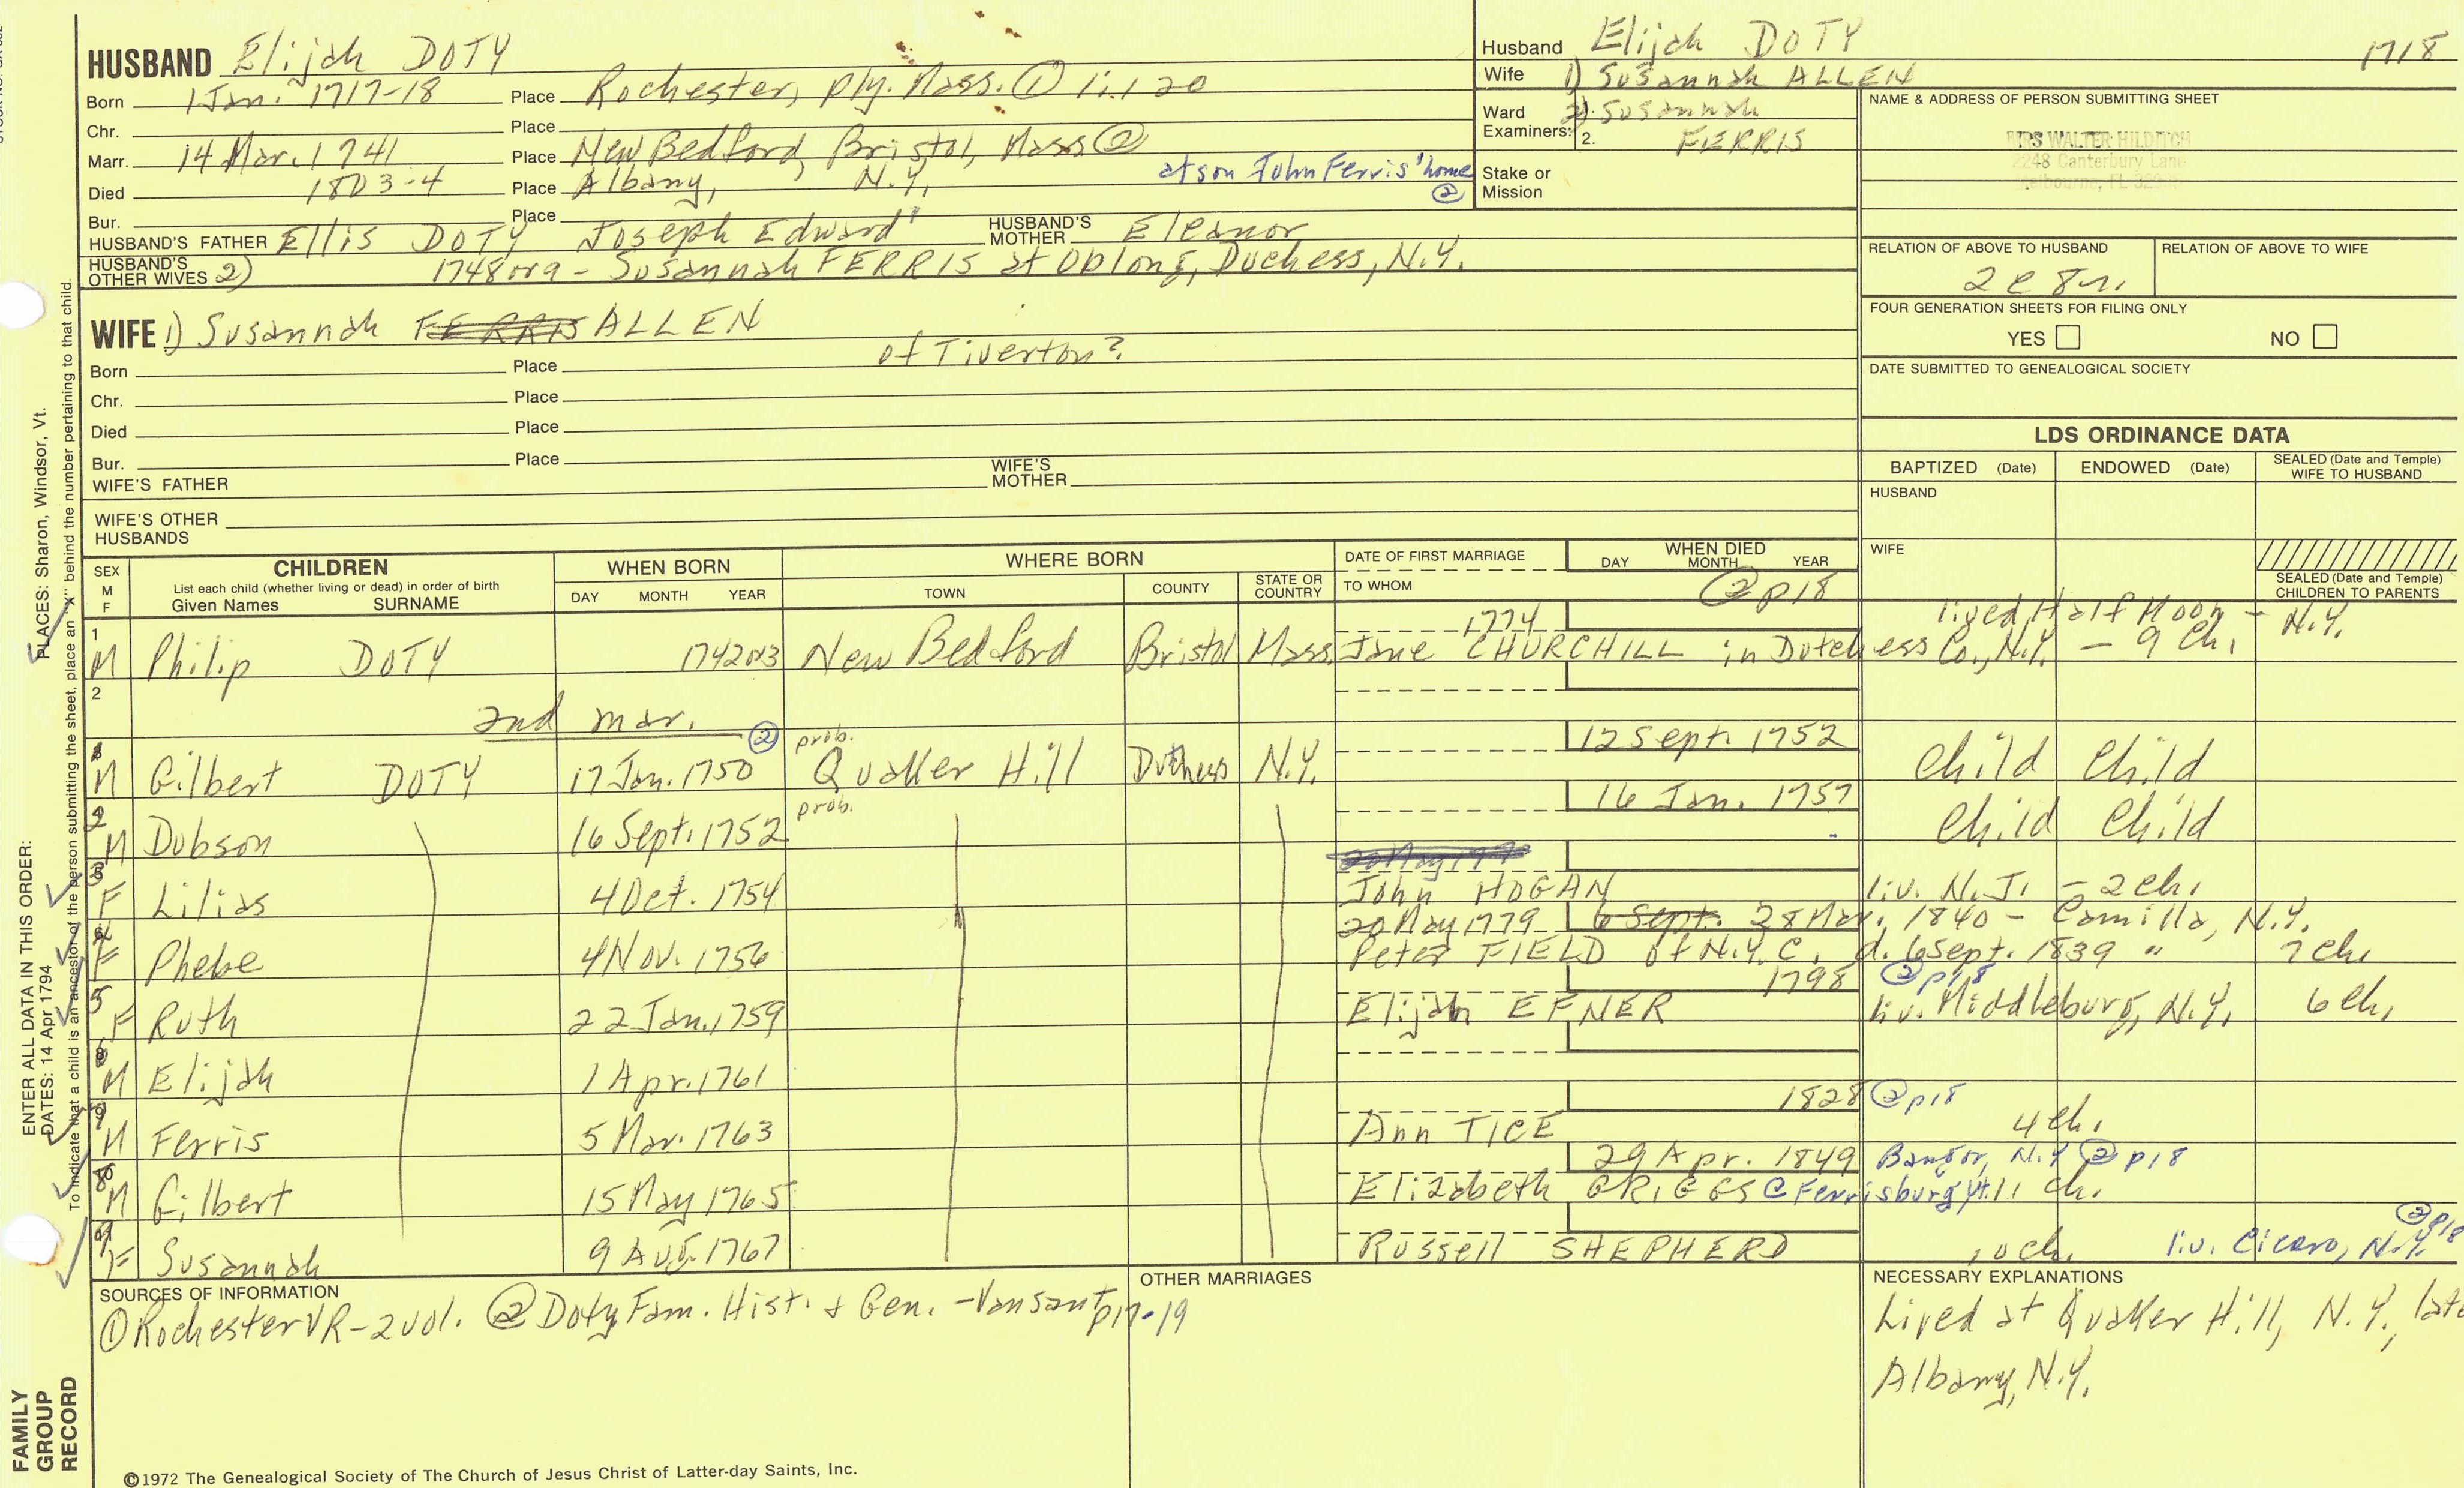 HUSBAND Elijah DOTY
Born 1 Jan. 1717-18 Place Rochester, Ply. Mass. ① 1:120
Chr. Place
Marr. 14 Mar. 1741 Place New Bedford, Bristol, Mass ②
Died 1803-4 Place Albany, N.Y. at son John Ferris' home ②
Bur. Place
HUSBAND'S FATHER Ellis DOTY Joseph Edward¹ HUSBAND'S MOTHER Eleanor
HUSBAND'S OTHER WIVES 2) 1748 or 9 - Susannah FERRIS at Oblong, Duchess, N.Y.
WIFE 1) Susannah FERRIS ALLEN
of Tiverton?
Born Place
Chr. Place
Died Place
Bur. Place
WIFE'S FATHER WIFE'S MOTHER
WIFE'S OTHER HUSBANDS
Husband Elijah DOTY 1718
Wife 1) Susannah ALLEN
Ward 2) Susannah
Examiners: 2. FERRIS
Stake or Mission
NAME & ADDRESS OF PERSON SUBMITTING SHEET
MRS WALTER HILDITCH
2248 Canterbury Lane
Melbourne, FL
RELATION OF ABOVE TO HUSBAND RELATION OF ABOVE TO WIFE
FOUR GENERATION SHEETS FOR FILING ONLY
YES NO
DATE SUBMITTED TO GENEALOGICAL SOCIETY
LDS ORDINANCE DATA
BAPTIZED (Date) ENDOWED (Date) SEALED (Date and Temple) WIFE TO HUSBAND
HUSBAND
WIFE
SEALED (Date and Temple) CHILDREN TO PARENTS
SEX M F CHILDREN List each child (whether living or dead) in order of birth Given Names SURNAME
WHEN BORN DAY MONTH YEAR
WHERE BORN TOWN COUNTY STATE OR COUNTRY
DATE OF FIRST MARRIAGE TO WHOM
WHEN DIED DAY MONTH YEAR
② p18
1 1774 lived Half Moon - N.Y.
M Philip DOTY 1742 or 3 New Bedford Bristol Mass. Jane CHURCHILL in Dutchess Co., N.Y. - 9 Ch.
2
2nd mar. ②
1 prob. 12 Sept. 1752
M Gilbert DOTY 17 Jan. 1750 Quaker Hill Dutchess N.Y. Child Child
2 prob. 16 Jan. 1757
M Dobson 16 Sept. 1752 Child Child
3
F Lilias 4 Oct. 1754 John HOGAN liv. N.J. - 2 Ch.
4 20 May 1779 6 Sept. 28 Mar. 1840 - Camilla, N.Y.
F Phebe 4 Nov. 1756 Peter FIELD of N.Y.C. d. 6 Sept. 1839 " 7 Ch.
5 1798 ② p18
F Ruth 22 Jan. 1759 Elijah EFNER liv. Middleburg, N.Y. 6 Ch.
6
M Elijah 1 Apr. 1761
7 1828 ② p18
M Ferris 5 Mar. 1763 Ann TICE 4 Ch.
8 29 Apr. 1849 Bangor, N.Y. ② p18
M Gilbert 15 May 1765 Elizabeth GRIGGS @ Ferrisburg Vt. 11 Ch.
9 ② p18
F Susannah 9 Aug. 1767 Russell SHEPHERD 10 ch. liv. Cicero, N.Y.
SOURCES OF INFORMATION
① Rochester VR - 2 vol. ② Doty Fam. Hist. & Gen. - Vansant p17-19
OTHER MARRIAGES
NECESSARY EXPLANATIONS
Lived at Quaker Hill, N.Y.,
Albany, N.Y.
©1972 The Genealogical Society of The Church of Jesus Christ of Latter-day Saints, Inc.
ENTER ALL DATA IN THIS ORDER: PLACES: Sharon, Windsor, Vt.
DATES: 14 Apr 1794
To indicate that a child is an ancestor of the person submitting the sheet, place an "X" behind the number pertaining to that child.
FAMILY GROUP RECORD